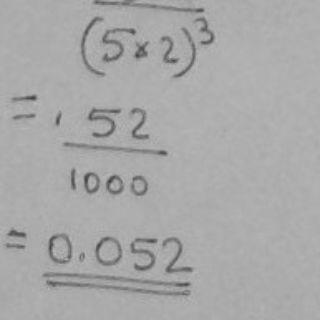 (5×2)³
= . 52
1000
= 0.052